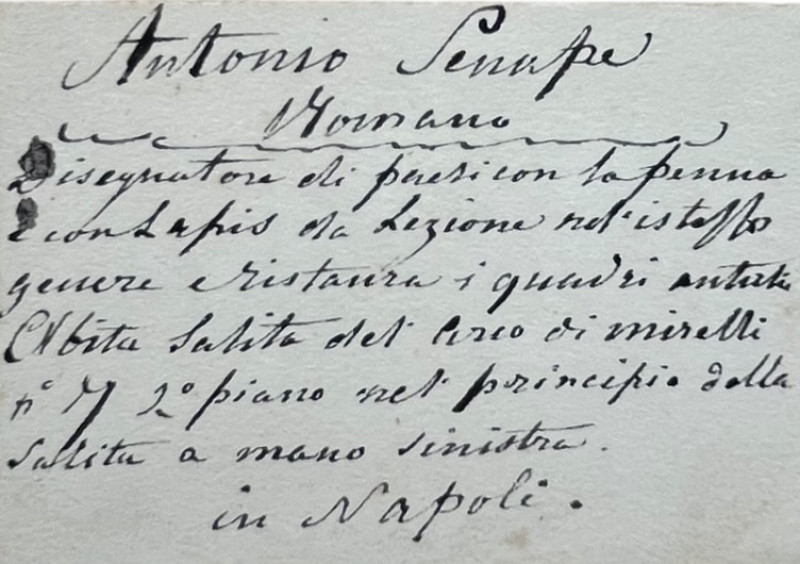 Antonio Senape
Romano
Disegnatore di paesi con la penna
e con Lapis da Lezione nel istesso
genere e ristaura i quadri antichi
Abita Salita del Arco di mirelli
n° 2° piano nel principio della
Salita a mano sinistra.
in Napoli.